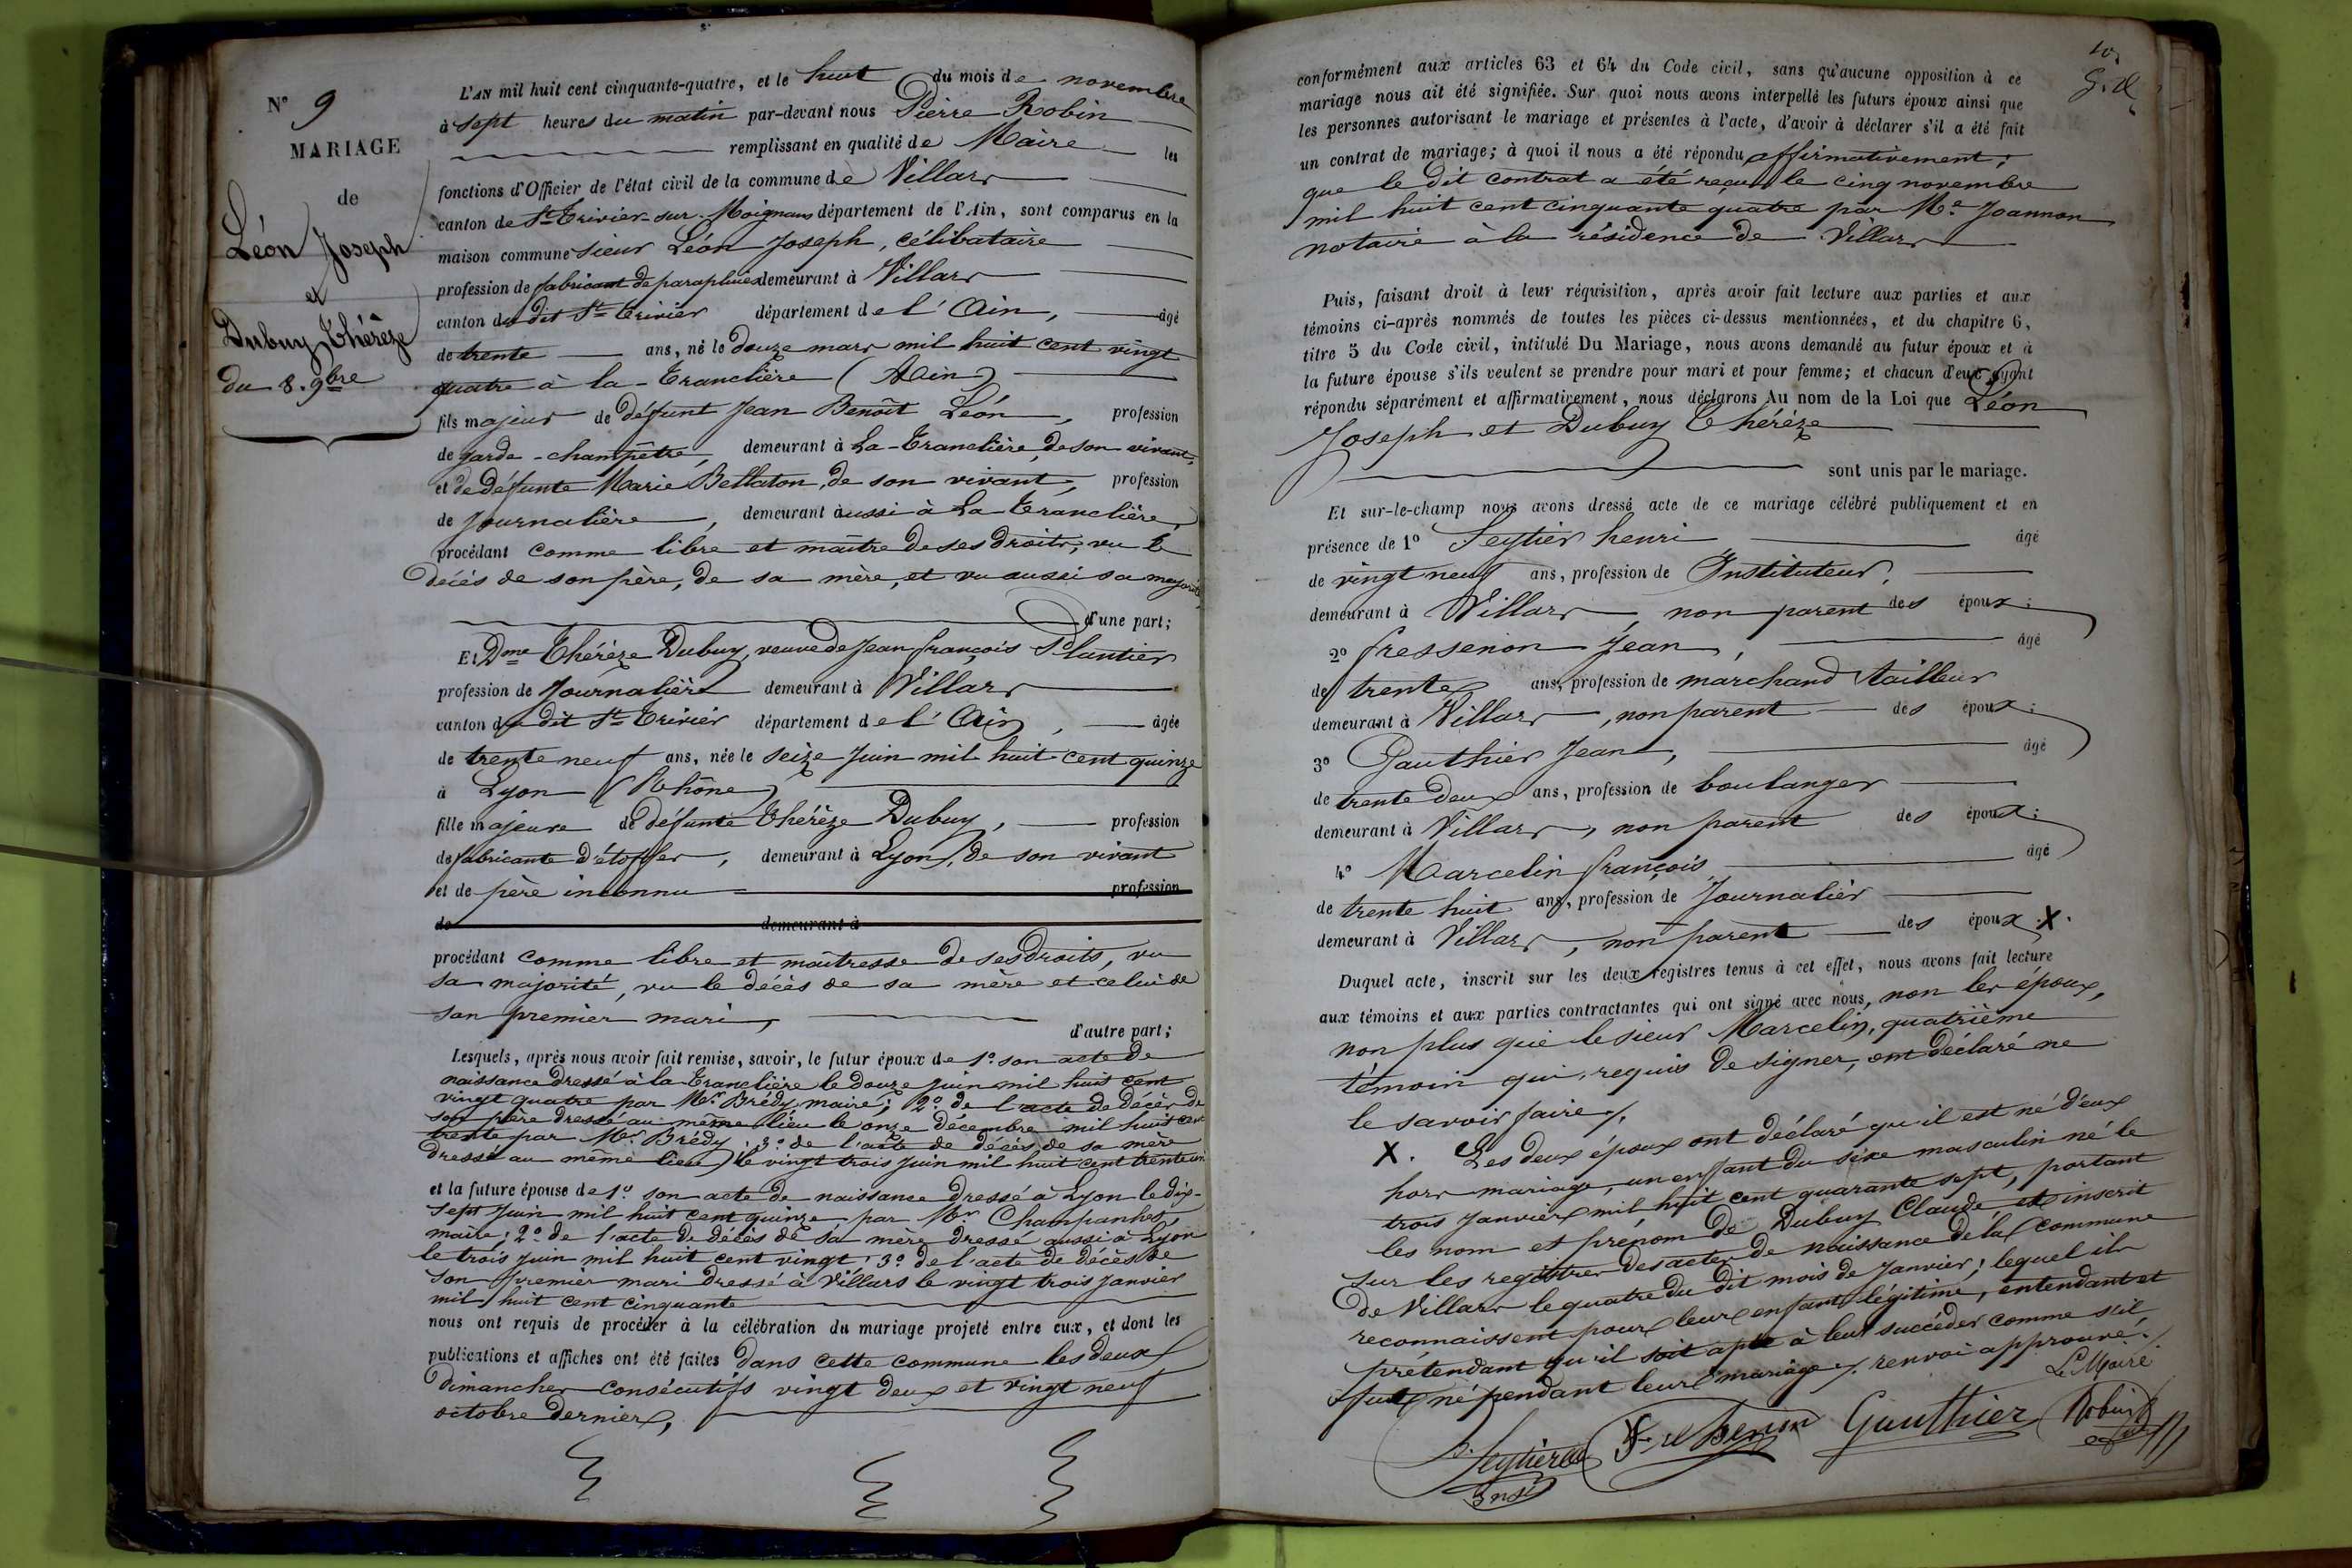 N° 9
MARIAGE
de
Léon Joseph
et
Dubuy Thérèze
du 8. 9bre
L'AN mil huit cent cinquante-quatre, et le huit du mois de novembre
à sept heures du matin par-devant nous Pierre Robin
remplissant en qualité de Maire les
fonctions d'Officier de l'état civil de la commune de Villars
canton de St Trivier-sur-Moignans département de l'Ain, sont comparus en la
maison commune sieur Léon Joseph, célibataire
profession de fabricant de parapluies demeurant à Villars
canton du dit St Trivier département de l'Ain, âgé
de trente ans, né le douze mars mil huit cent vingt
quatre à la-Tranclière (Ain)
fils majeur de défunt Jean Benoît Léon, profession
de garde-champêtre, demeurant à La-Tranclière, de son vivant,
et de défunte Marie Bellaton, de son vivant, profession
de Journalière, demeurant aussi à La Tranclière,
procédant comme libre et maître de ses droits, vu le
décès de son père, de sa mère, et vu aussi sa majorité,
d'une part;
Et Dme Thérèze Dubuy, veuve de Jean françois Plantier
profession de Journalière demeurant à Villars
canton du dit St Trivier département de l'Ain, âgée
de trente neuf ans, née le seize Juin mil huit cent quinze
à Lyon (Rhône)
fille majeure de défunte Thérèze Dubuy, profession
de fabricante d'étoffes, demeurant à Lyon, de son vivant
et de père inconnu profession
de demeurant à
procédant comme libre et maîtresse de ses droits, vu
sa majorité, vu le décès de sa mère et celui de
son premier mari,
d'autre part;
Lesquels, après nous avoir fait remise, savoir, le futur époux de 1° son acte de
naissance dressé à la Tranclière le douze juin mil huit cent
vingt quatre par Mr Brédy maire; 2° de l'acte de décès de
son père dressé au même lieu le onze décembre mil huit cent
trente par Mr Brédy; 3° de l'acte de décès de sa mère
dressé au même lieu le vingt trois juin mil huit cent trente un
et la future épouse de 1° son acte de naissance dressé à Lyon le dix-
sept Juin mil huit cent quinze par Mr Champanhet
maire; 2° de l'acte de décès de sa mère dressé aussi à Lyon
le trois juin mil huit cent vingt; 3° de l'acte de décès de
son premier mari dressé à Villars le vingt trois janvier
mil huit cent cinquante
nous ont requis de procéder à la célébration du mariage projeté entre eux, et dont les
publications et affiches ont été faites dans cette commune les deux
dimanches consécutifs vingt deux et vingt neuf
octobre dernier,
conformément aux articles 63 et 64 du Code civil, sans qu'aucune opposition à ce
mariage nous ait été signifiée. Sur quoi nous avons interpellé les futurs époux ainsi que
les personnes autorisant le mariage et présentes à l'acte, d'avoir à déclarer s'il a été fait
un contrat de mariage; à quoi il nous a été répondu affirmativement;
que le dit contrat a été reçu le cinq novembre
mil huit cent cinquante quatre par Me Joannon
notaire à la résidence de Villars
Puis, faisant droit à leur réquisition, après avoir fait lecture aux parties et aux
témoins ci-après nommés de toutes les pièces ci-dessus mentionnées, et du chapitre 6,
titre 5 du Code civil, intitulé Du Mariage, nous avons demandé au futur époux et à
la future épouse s'ils veulent se prendre pour mari et pour femme; et chacun d'eux ayant
répondu séparément et affirmativement, nous déclarons Au nom de la Loi que Léon
Joseph et Dubuy Thérèze
sont unis par le mariage.
Et sur-le-champ nous avons dressé acte de ce mariage célébré publiquement et en
présence de 1° Seytier henri âgé
de vingt neuf ans, profession de Instituteur,
demeurant à Villars, non parent des époux;
2° fressenon Jean, âgé
de trente ans, profession de marchand tailleur
demeurant à Villars, non parent des époux;
3° Gauthier Jean, âgé
de trente deux ans, profession de boulanger
demeurant à Villars, non parent des époux;
4° Marcelin françois âgé
de trente huit ans, profession de Journalier
demeurant à Villars, non parent des époux. X.
Duquel acte, inscrit sur les deux registres tenus à cet effet, nous avons fait lecture
aux témoins et aux parties contractantes qui ont signé avec nous, non les époux,
non plus que le sieur Marcelin, quatrième
témoin qui, requis de signer, ont déclaré ne
le savoir faire.
X. Les deux époux ont déclaré qu'il est né d'eux
hors mariage, un enfant du sexe masculin né le
trois Janvier mil huit cent quarante sept, portant
les nom et prénom de Dubuy Claude, et inscrit
sur les registres des actes de naissance de la commune
de Villars le quatre du dit mois de Janvier; lequel ils
reconnaissent pour leur enfant légitime, entendant et
prétendant qu'il soit apte à leur succéder comme s'il
fut né pendant leur mariage. renvoi approuvé.
Le Maire
Seytier Gauthier Robin
Inst